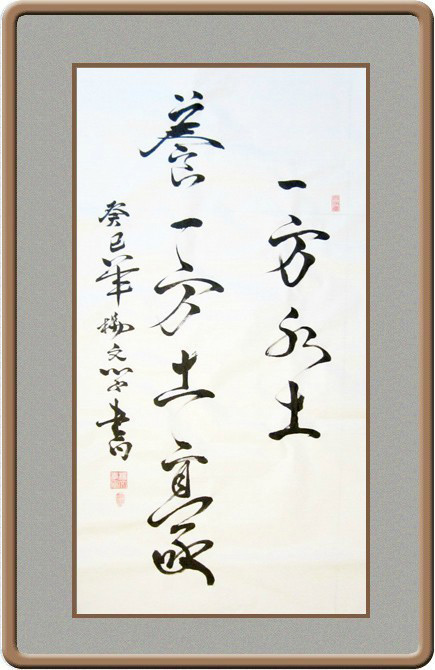 一方水土
養一方土豪
癸巳年楊文學書